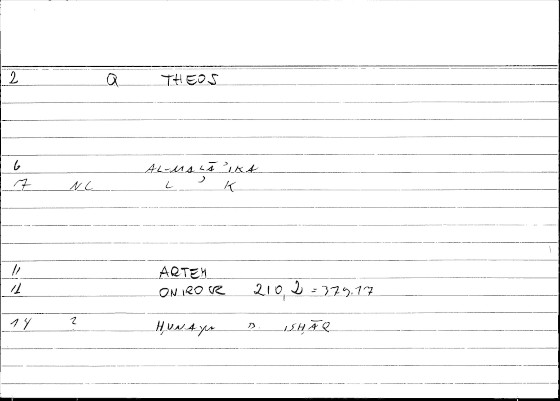 2 Q THEOS
6 AL-MALĀʾIKA
7 NC L ʾ K
11 ARTEM
12 ONIROCR 210,2 = 379.17
14 2 ḤUNAYN B. ISḤĀQ